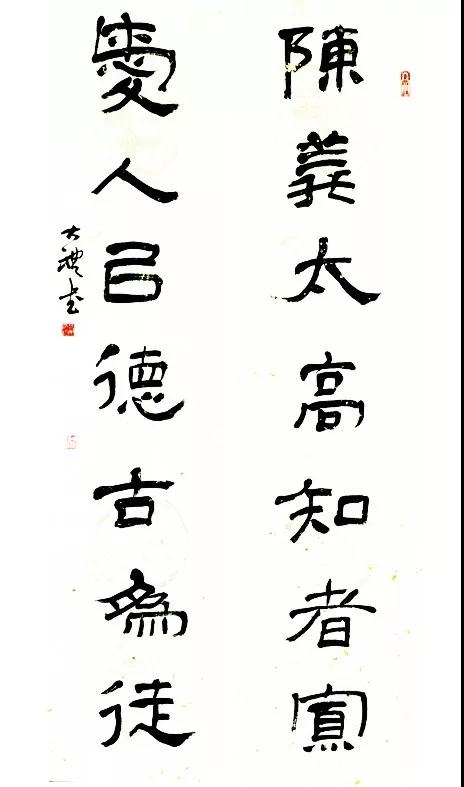 陳義太高知者寡
愛人㠯德古為徒
大禮書